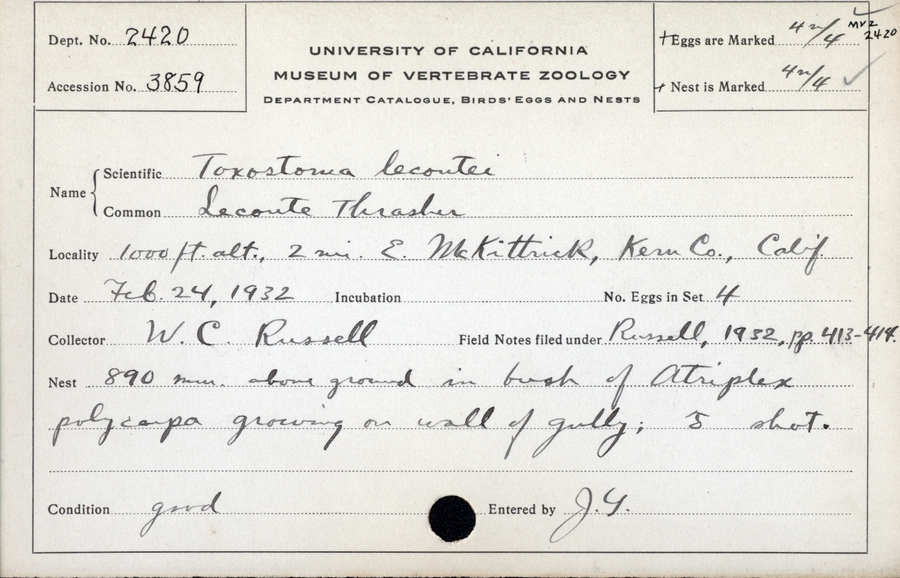 Dept. No. 2420
Accession No. 3859
UNIVERSITY OF CALIFORNIA
MUSEUM OF VERTEBRATE ZOOLOGY
DEPARTMENT CATALOGUE, BIRDS' EGGS AND NESTS
+Eggs are Marked 4n/4 MVZ 2420
+ Nest is Marked 4n/4 ✓
Name { Scientific Toxostoma lecontei
Common Leconte Thrasher
Locality 1000 ft. alt., 2 mi. E. McKittrick, Kern Co., Calif.
Date Feb. 24, 1932 Incubation No. Eggs in Set 4
Collector W. C. Russell Field Notes filed under Russell, 1932, pp. 413-414.
Nest 890 mm. above ground in bush of Atriplex
polycarpa growing on wall of gully; shot.
Condition good Entered by J.Y.